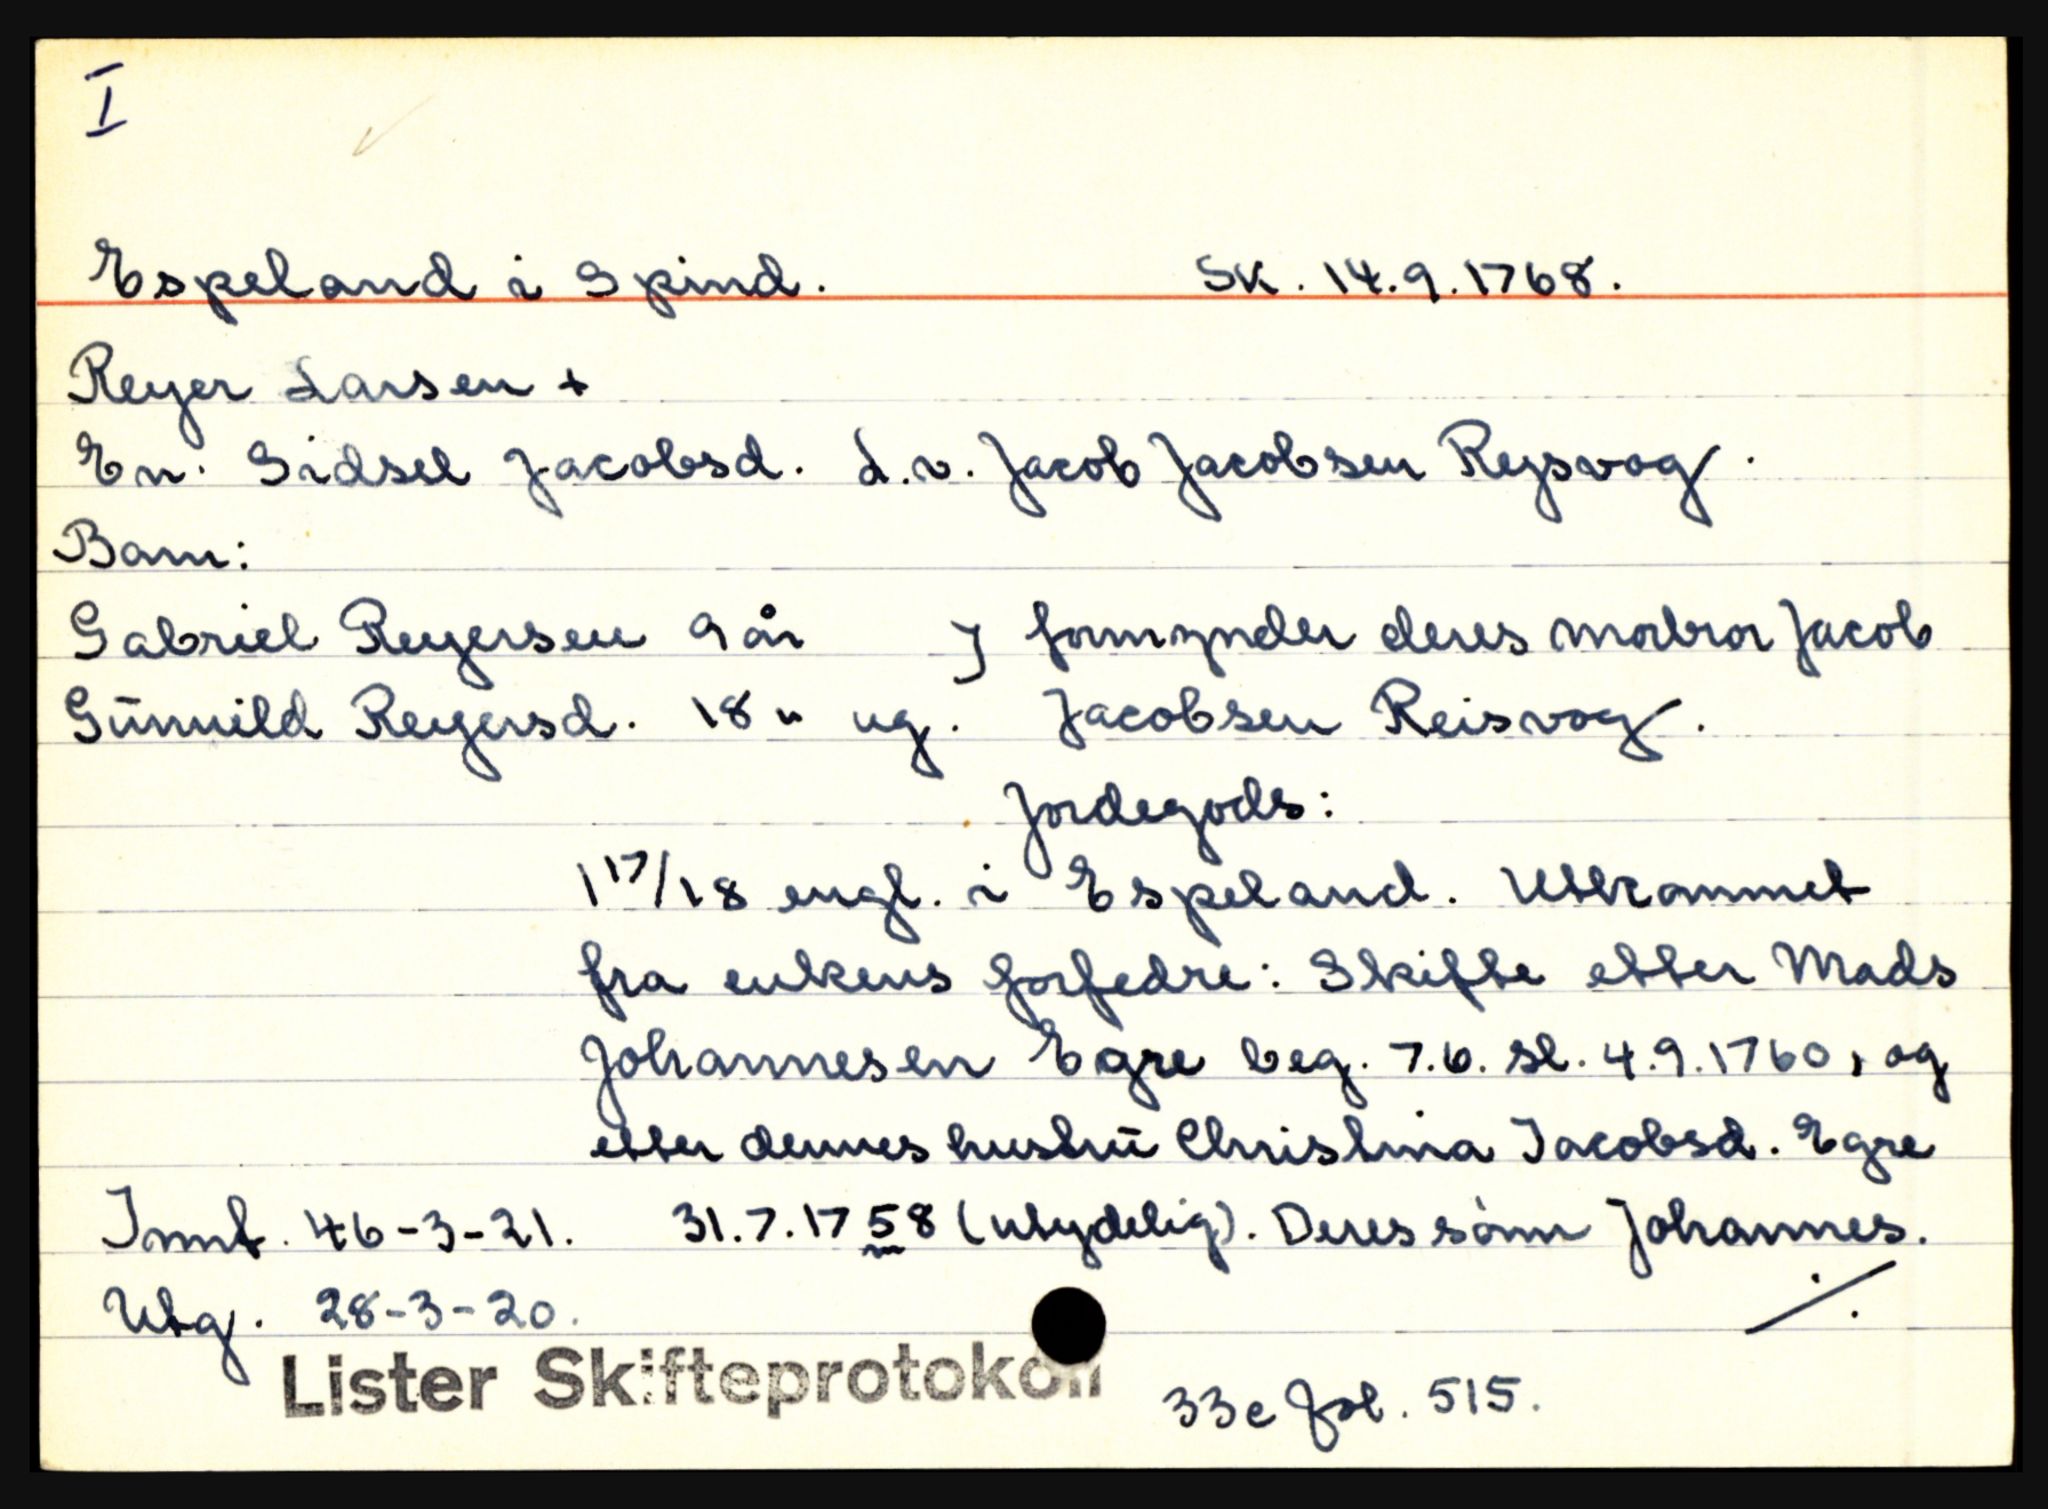 I
Espeland i Spind. SK. 14.9.1768.
Reyer Larsen +
En. Sidsel Jacobsd. L.v. Jacob Jacobsen Reysvog.
Barn:
Gabriel Reyersen 9 år } formynder deres morbror Jacob
Gŭnnild Reyersd. 18 " ug. Jacobsen Reisvog.
Jordegods:
1 17/18 engl. i Espeland. Utkommet
fra enkens forfedre: Skifte etter Mads
Johannesen Egre beg. 7.6. sl. 4.9.1760, og
etter dennes hustrŭ Christina Jacobsd. Egre
Innt. 46-3-21. 31.7.1758 (utydelig). Deres sønn Johannes.
Utg. 28-3-20. ./.
Lister Skifteprotokoll 33c fol. 515.